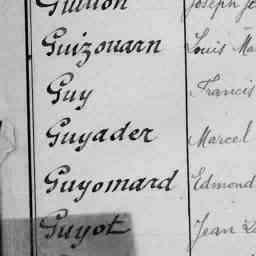 Guillon Joseph
Guizouarn Louis
Guy Francis
Guyader Marcel
Guyomard Edmond
Guyot Jean